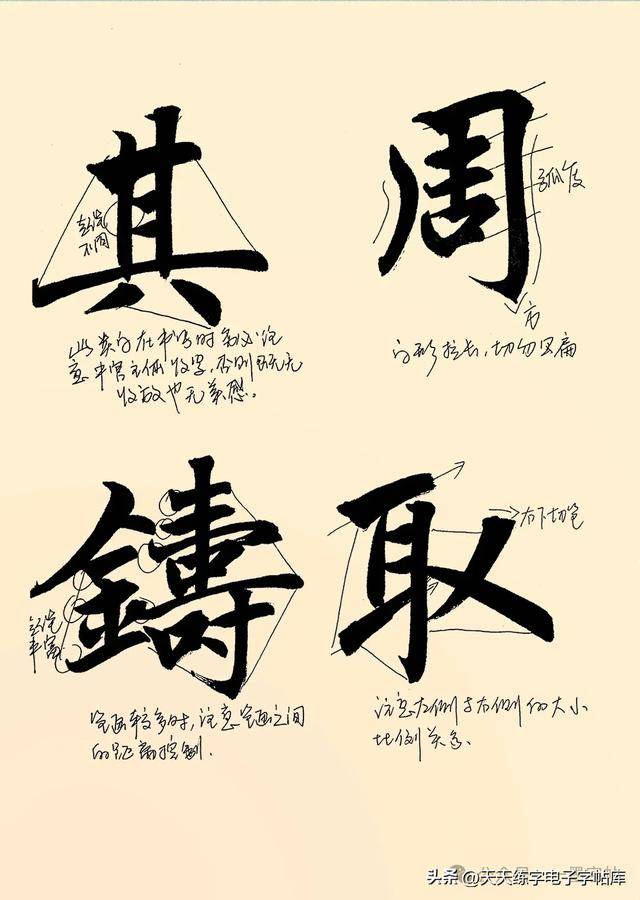 其
起笔
不同
此类字在书写时务必注
意中宫主体收紧,否则既无
收放也无美感。
周
弧度
方
字形拉长,切勿写扁
鑄
起笔
丰富
笔画较多时,注意笔画之间
的距离控制.
取
右下切笔
注意左侧与右侧的大小
比例关系.
头条@天天练字电子字帖库